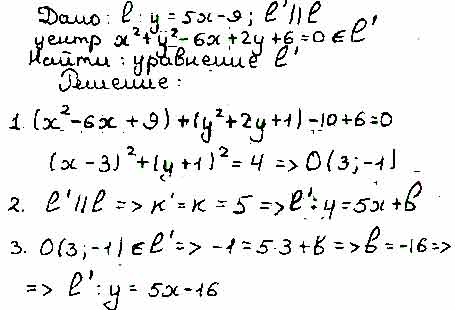 Дано: l: y = 5x - 9; l' // l
центр x² + y² - 6x + 2y + 6 = 0 ∈ l'
Найти: уравнение l'
Решение:
1. (x² - 6x + 9) + (y² + 2y + 1) - 10 + 6 = 0
(x - 3)² + (y + 1)² = 4 => O(3; -1)
2. l' // l => к' = к = 5 => l': y = 5x + b
3. O(3; -1) ∈ l' => -1 = 5·3 + b => b = -16 =>
=> l': y = 5x - 16